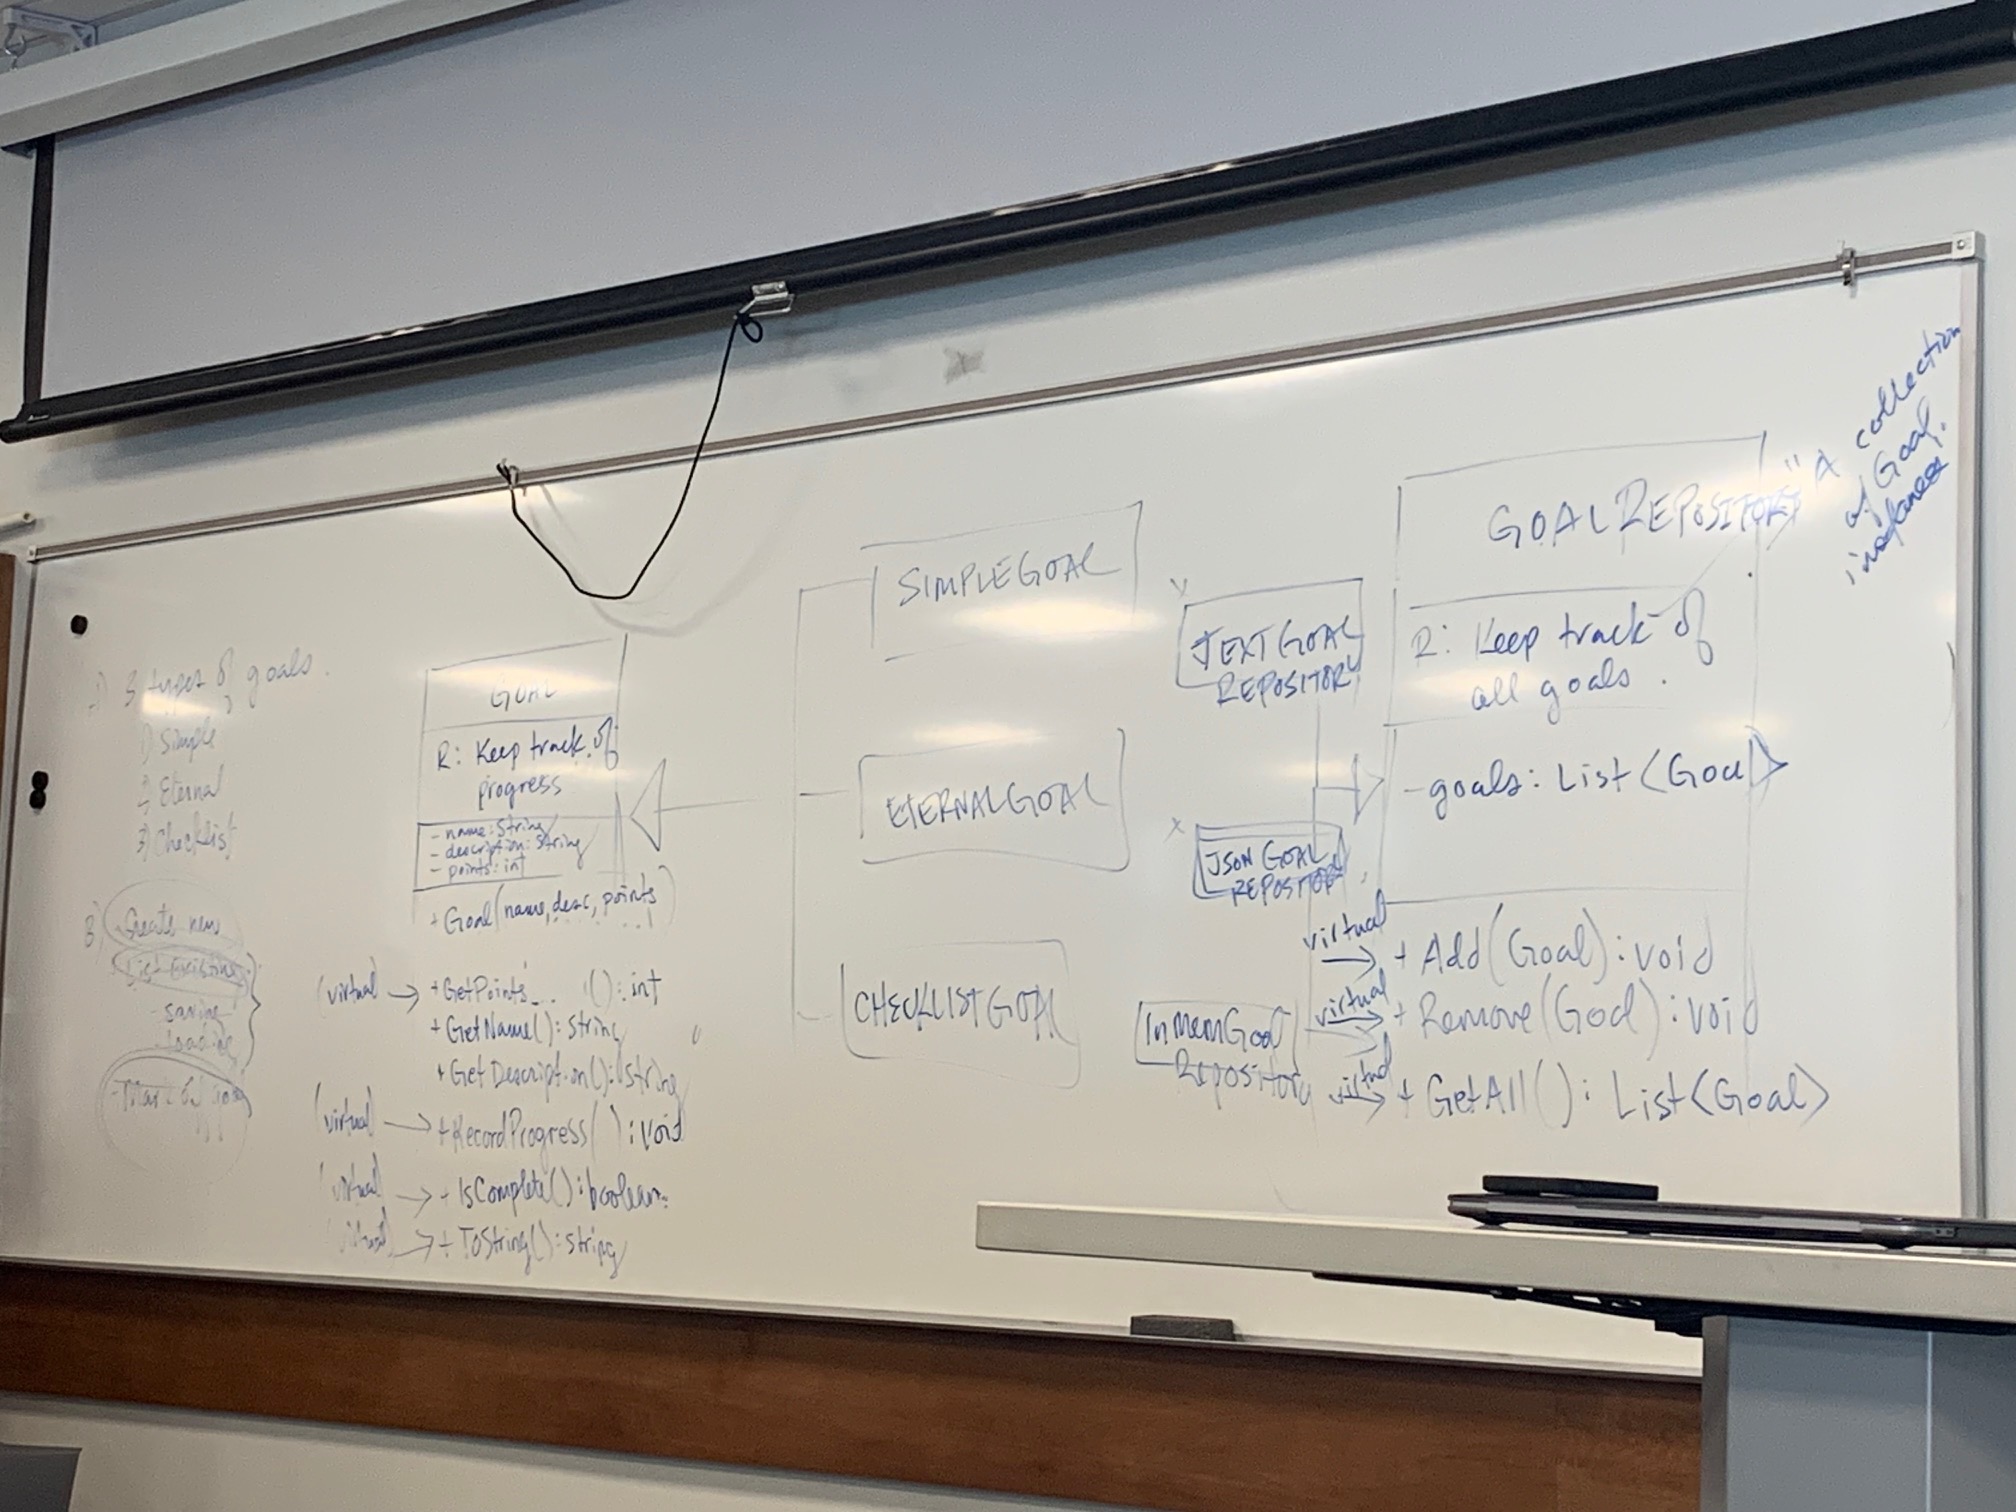 A) 3 types of goals.
1) Simple
2) Eternal
3) Checklist
B)
- Create new
- List Existing
- saving
- loading
- Mark off
GOAL
R: Keep track of
progress
- name: String
- description: String
- points: int
+ Goal(name, desc, points
(virtual) → + GetPoints (): int
+ GetName(): string
+ GetDescription(): string
(virtual) → + RecordProgress( ): void
(virtual) → + IsComplete(): boolean
(virtual) → + ToString(): string
SIMPLEGOAL
ETERNALGOAL
CHECKLISTGOAL
TEXTGOAL
REPOSITORY
JSONGOAL
REPOSITORY
InMemGoal
Repository
GOALREPOSITORY
"A collection
of Goal
instances"
R: Keep track of
all goals.
- goals: List<Goal>
virtual → + Add(Goal): void
virtual → + Remove(Goal): void
virtual → + GetAll(): List<Goal>